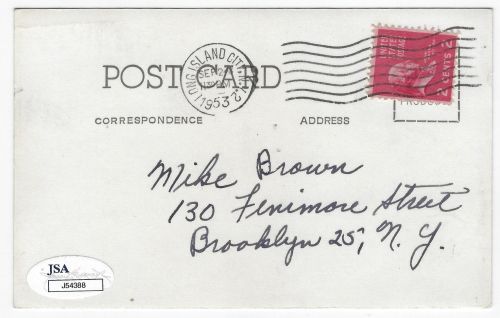 POST CARD
LONG ISLAND CITY, N.Y.
SEP 2
1953
UNITED STATES POSTAGE
2 CENTS 2
CORRESPONDENCE
ADDRESS
Mike Brown
130 Fenimore Street
Brooklyn 25, N. Y.
JSA
J54388